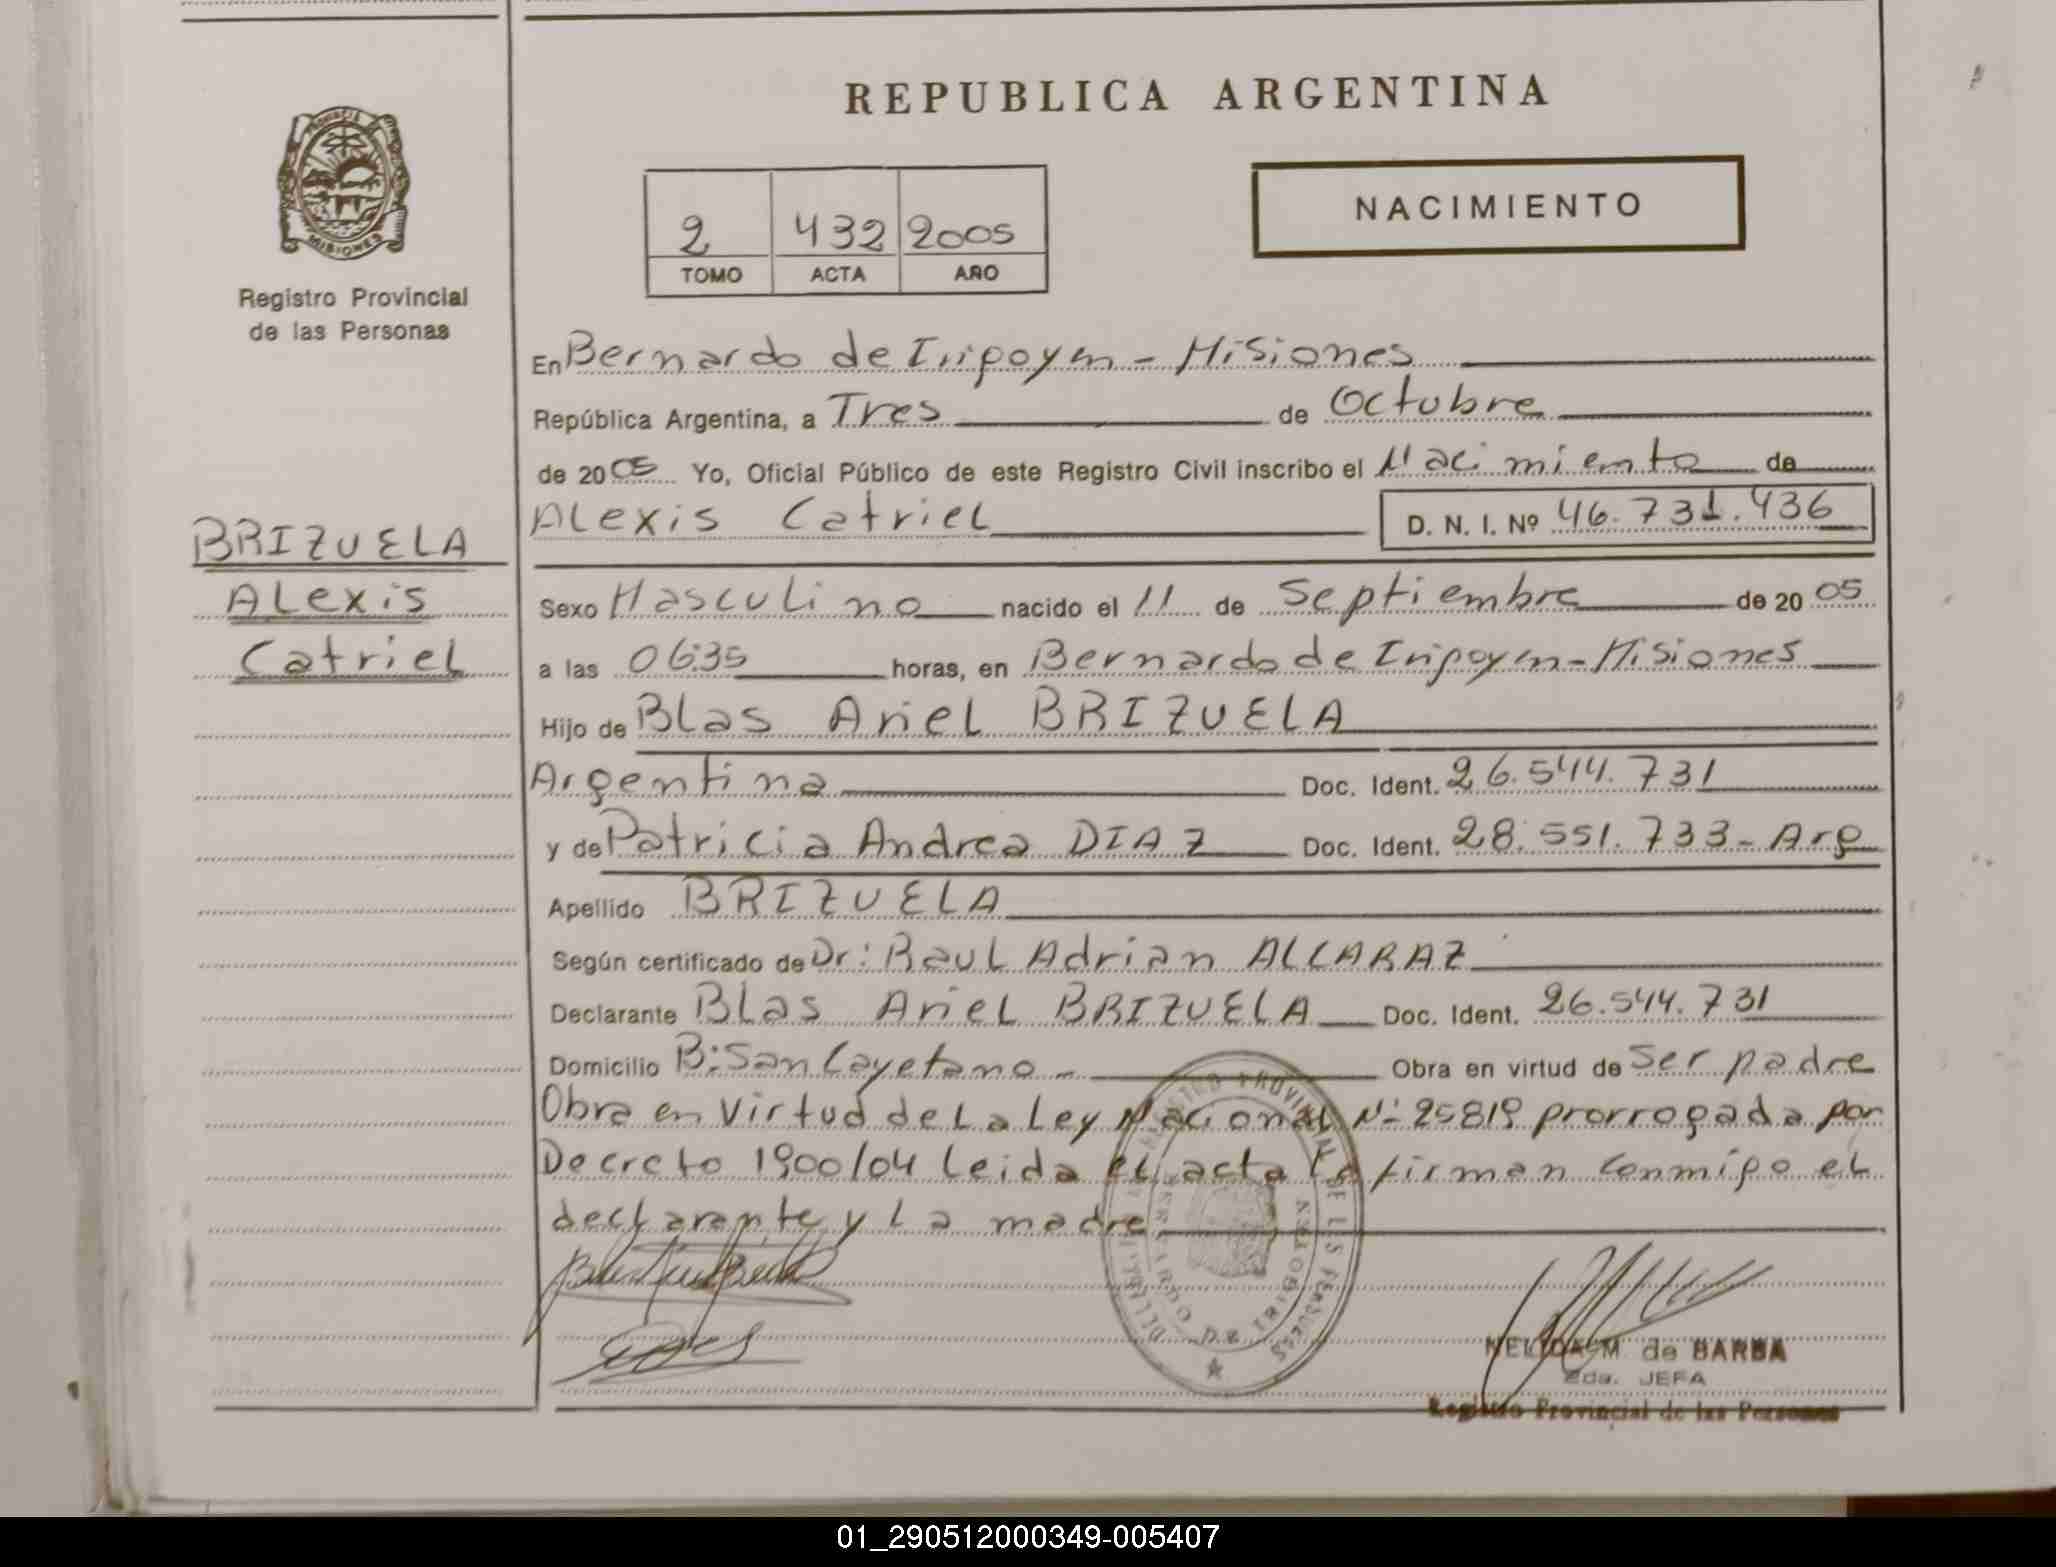 REPUBLICA ARGENTINA
PROVINCIA
MISIONES
Registro Provincial
de las Personas
2 432 2005
TOMO ACTA AÑO
NACIMIENTO
En Bernardo de Irigoyen - Misiones
República Argentina, a Tres de Octubre
de 2005 Yo, Oficial Público de este Registro Civil inscribo el Nacimiento de
Alexis Catriel D. N. I. Nº 46.731.436
BRIZUELA
Alexis
Catriel
Sexo Masculino nacido el 11 de Septiembre de 2005
a las 06:35 horas, en Bernardo de Irigoyen - Misiones
Hijo de Blas Ariel BRIZUELA
Argentina Doc. Ident. 26.544.731
y de Patricia Andrea DIAZ Doc. Ident. 28.551.733 - Arg
Apellido BRIZUELA
Según certificado de Dr: Raul Adrian ALCARAZ
Declarante Blas Ariel BRIZUELA Doc. Ident. 26.544.731
Domicilio B: San Cayetano - Obra en virtud de Ser padre
Obra en Virtud de La Ley Nacional Nº 25819 prorrogada por
Decreto 1900/04 Leida el acta La firman Conmigo el
declarante y La madre
REGISTRO PROVINCIAL DE LAS PERSONAS
BERNARDO DE IRIGOYEN
NELIDA M. de BARBA
2da. JEFA
Registro Provincial de las Personas
01_290512000349-005407